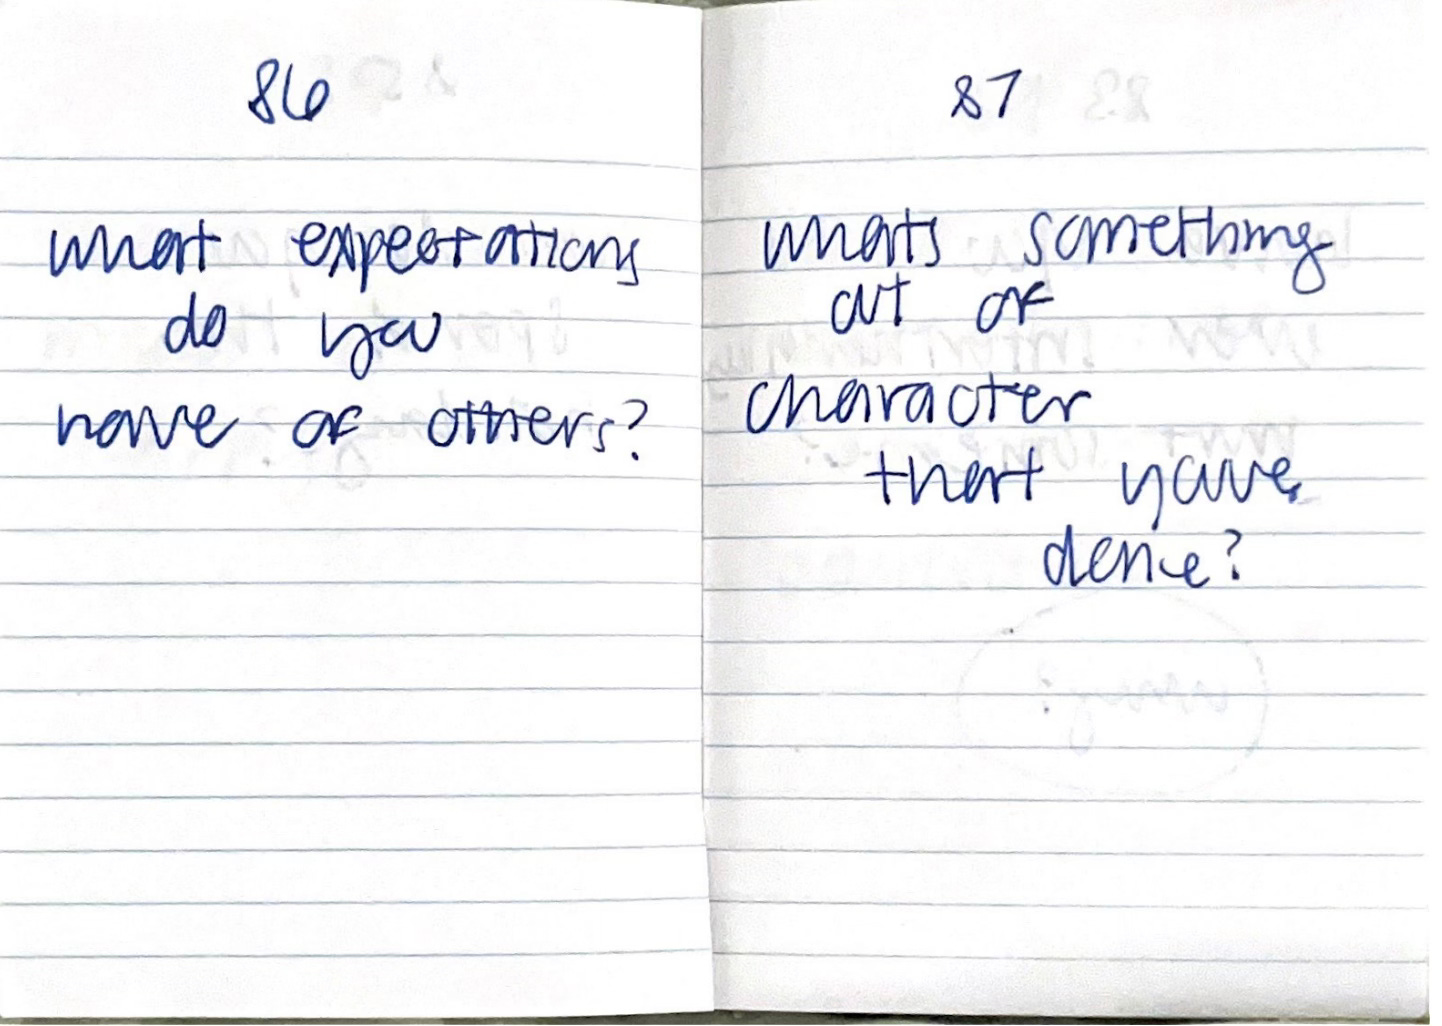 86
what expectations
do you
have of others?
87
whats something
out of
character
that youve
done?